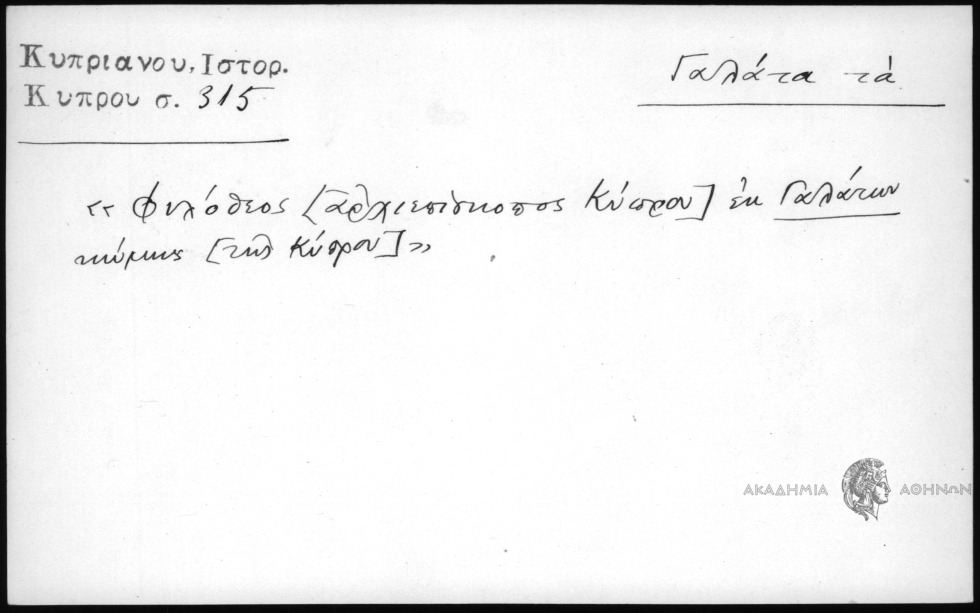 Κυπριανου, Ιστορ.
Κυπρου σ. 315
Γαλάτα τά
«Φιλόθεος [αρχιεπίσκοπος Κύπρου] ἐκ Γαλάτων
κώμης [της Κύπρου]»
ΑΚΑΔΗΜΙΑ ΑΘΗΝΩΝ